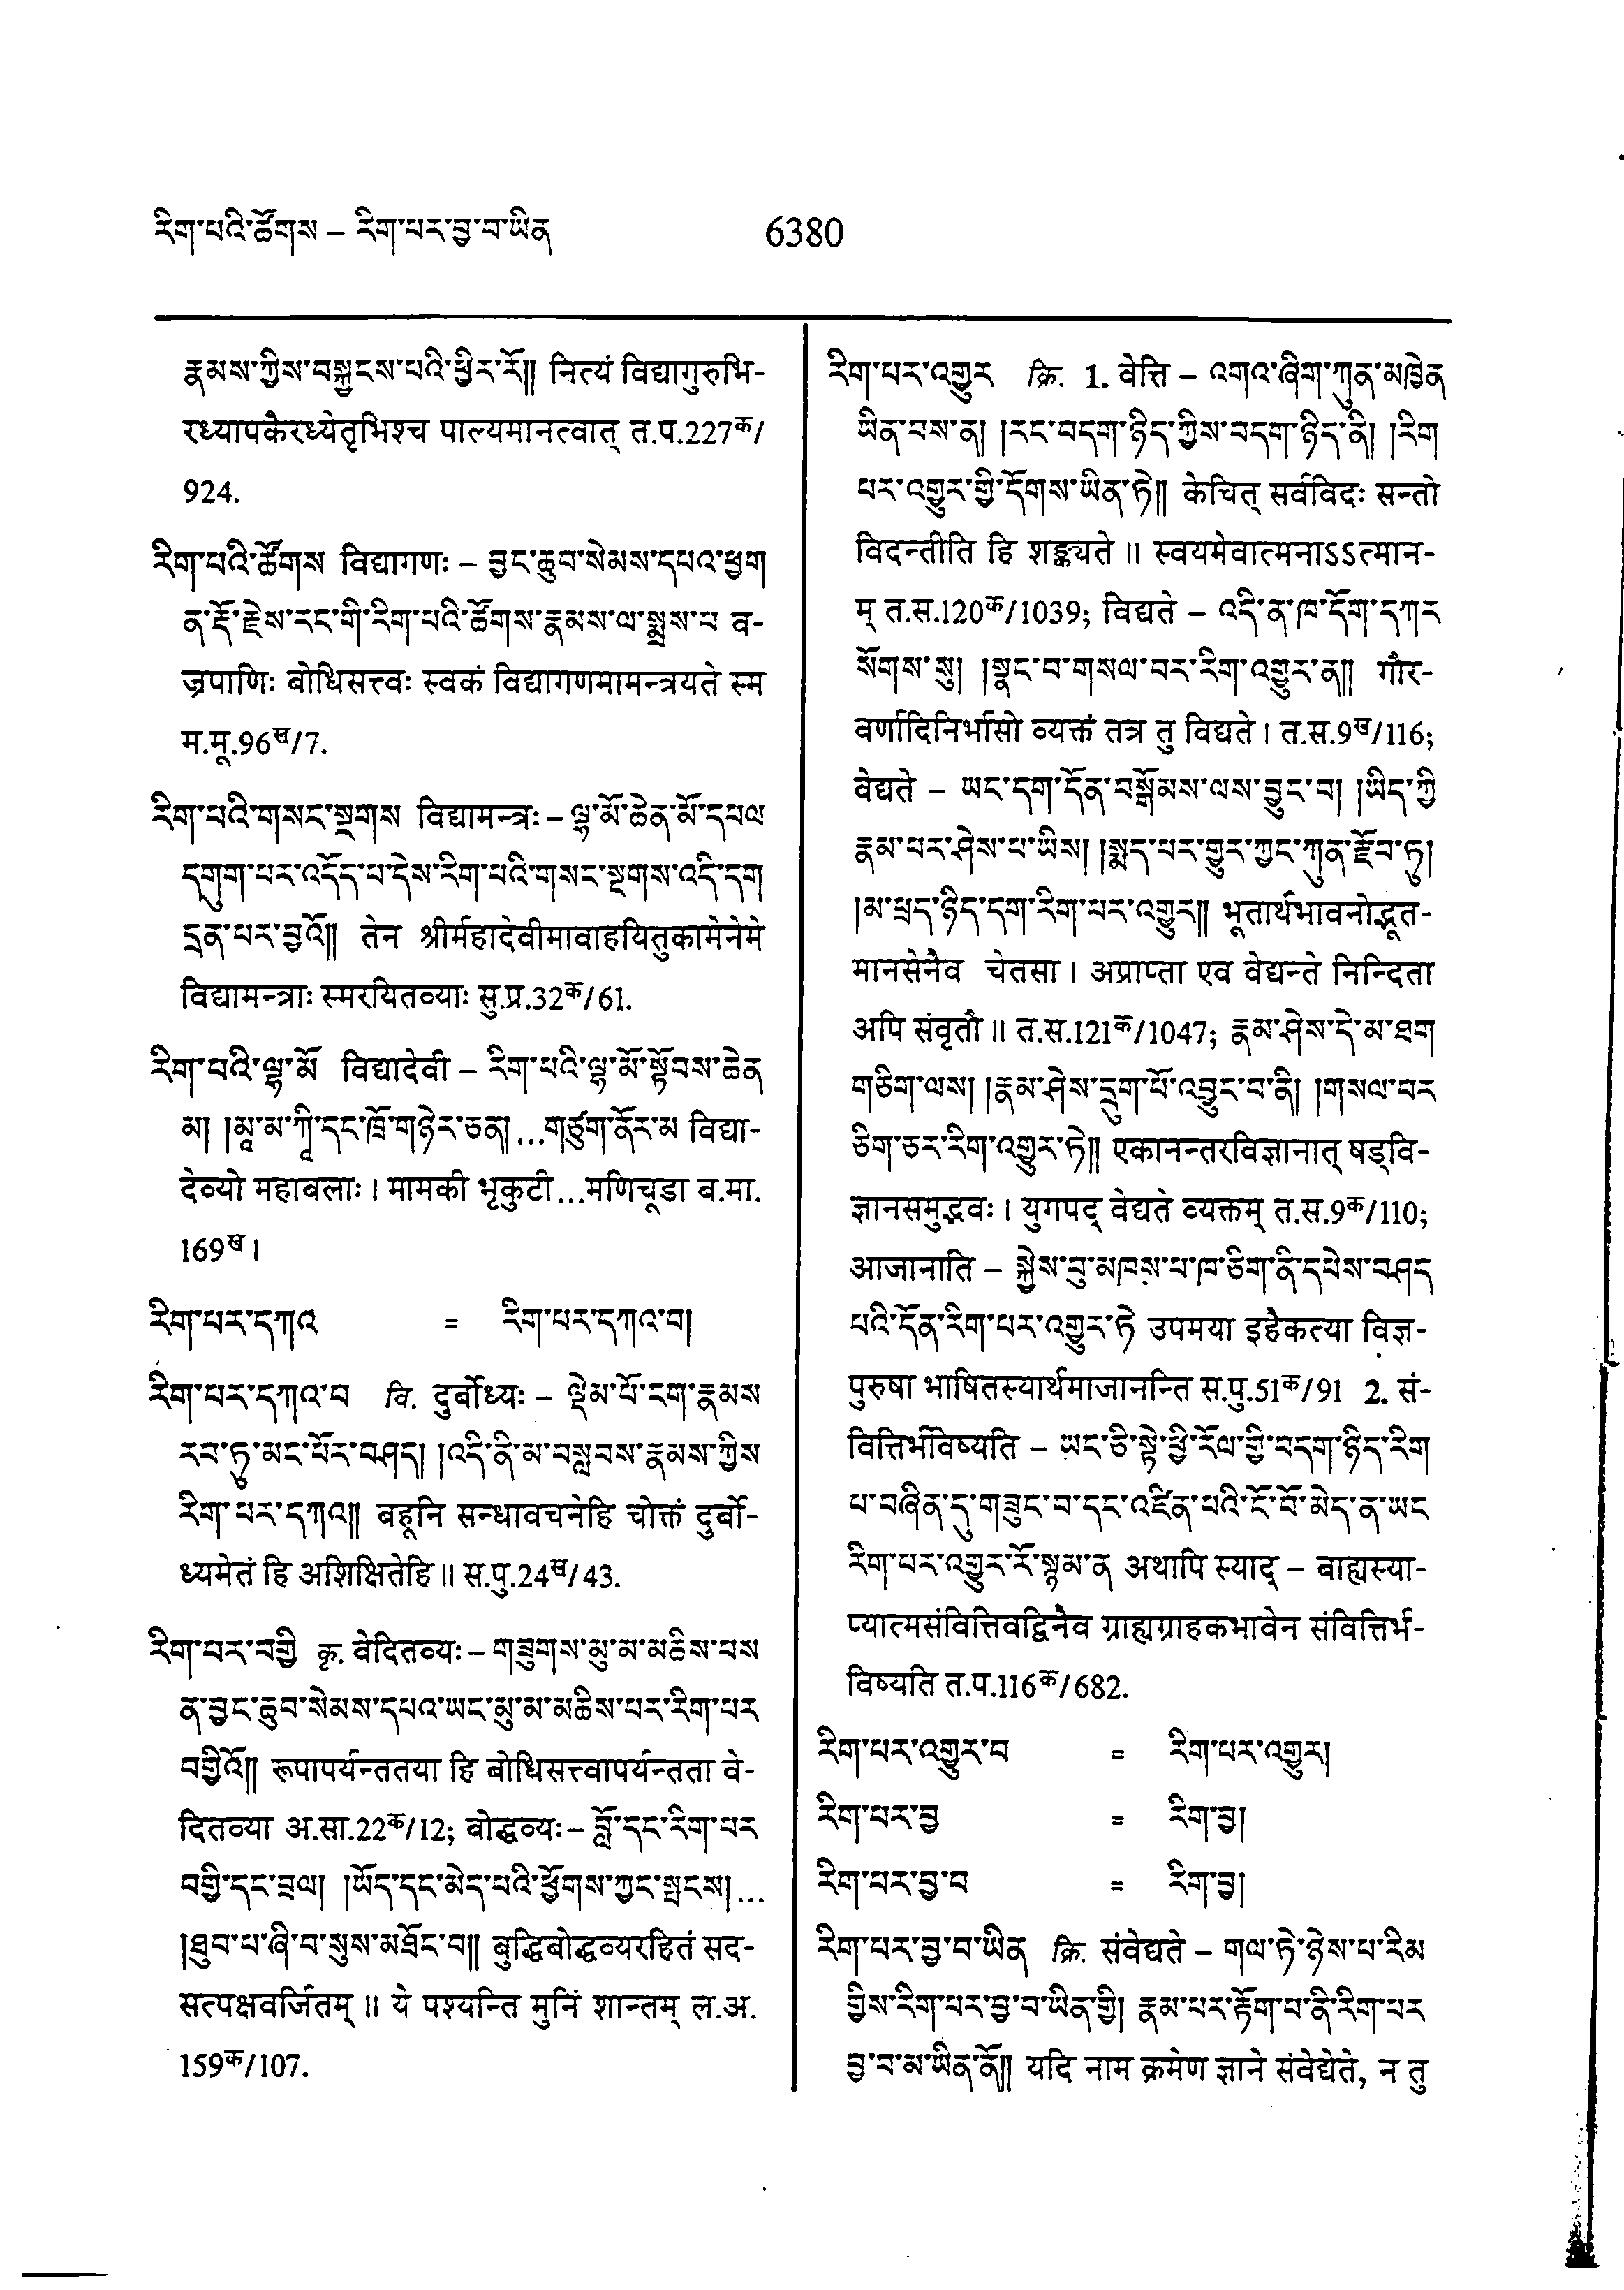 རིག་པའི་ཚོགས – རིག་པར་བྱ་བ་ཡིན
6380
རྣམས་ཀྱིས་བསྐྱངས་པའི་ཕྱིར་རོ༎ नित्यं विद्यागुरुभि-
रध्यापकैरध्येतृभिश्च पाल्यमानत्वात् त.प.227क/
924.
རིག་པའི་ཚོགས विद्यागणः – བྱང་ཆུབ་སེམས་དཔའ་ཕྱག
ན་རྡོ་རྗེས་རང་གི་རིག་པའི་ཚོགས་རྣམས་ལ་སྨྲས་པ व-
ज्रपाणिः बोधिसत्त्वः स्वकं विद्यागणमामन्त्रयते स्म
म.मू.96ख/7.
རིག་པའི་གསང་སྔགས विद्यामन्त्रः – ལྷ་མོ་ཆེན་མོ་དཔལ
དགུག་པར་འདོད་པ་དེས་རིག་པའི་གསང་སྔགས་འདི་དག
དྲན་པར་བྱའོ༎ तेन श्रीर्महादेवीमावाहयितुकामेनेमे
विद्यामन्त्राः स्मरयितव्याः सु.प्र.32क/61.
རིག་པའི་ལྷ་མོ विद्यादेवी – རིག་པའི་ལྷ་མོ་སྟོབས་ཆེན
མ། །མཱ་མ་ཀཱི་དང་ཁྲོ་གཉེར་ཅན།...གཙུག་ནོར་མ विद्या-
देव्यो महाबलाः। मामकी भृकुटी...मणिचूडा ब.मा.
169ख।
རིག་པར་དཀའ = རིག་པར་དཀའ་བ།
རིག་པར་དཀའ་བ वि. दुर्बोध्यः – ལྡེམ་པོ་ངག་རྣམས
རབ་ཏུ་མང་པོར་བཤད། །འདི་ནི་མ་བསླབས་རྣམས་ཀྱིས
རིག་པར་དཀའ༎ बहूनि सन्धावचनेहि चोक्तं दुर्बो-
ध्यमेतं हि अशिक्षितेहि॥ स.पु.24ख/43.
རིག་པར་བགྱི कृ. वेदितव्यः – གཟུགས་མུ་མ་མཆིས་པས
ན་བྱང་ཆུབ་སེམས་དཔའ་ཡང་མུ་མ་མཆིས་པར་རིག་པར
བགྱིའོ༎ रूपापर्यन्ततया हि बोधिसत्त्वापर्यन्तता वे-
दितव्या अ.सा.22क/12; बोद्धव्यः – བློ་དང་རིག་པར
བགྱི་དང་བྲལ། །ཡོད་དང་མེད་པའི་ཕྱོགས་ཀྱང་སྤངས།...
།ཐུབ་པ་ཞི་བ་སུས་མཐོང་བ༎ बुद्धिबोद्धव्यरहितं सद-
सत्पक्षवर्जितम्॥ ये पश्यन्ति मुनिं शान्तम् ल.अ.
159क/107.
རིག་པར་འགྱུར क्रि. 1. वेत्ति – འགའ་ཞིག་ཀུན་མཁྱེན
ཡིན་པས་ན། །རང་བདག་ཉིད་ཀྱིས་བདག་ཉིད་ནི། །རིག
པར་འགྱུར་གྱི་དོགས་ཡིན་ཏེ༎ केचित् सर्वविदः सन्तो
विदन्तीति हि शङ्क्यते॥ स्वयमेवात्मनाऽऽत्मान-
म् त.स.120क/1039; विद्यते – འདི་ན་ཁ་དོག་དཀར
སོགས་སུ། །སྣང་བ་གསལ་བར་རིག་འགྱུར་ན༎ गौर-
वर्णादिनिर्भासो व्यक्तं तत्र तु विद्यते। त.स.9ख/116;
वेद्यते – ཡང་དག་དོན་བསྒོམས་ལས་བྱུང་བ། །ཡིད་ཀྱི
རྣམ་པར་ཤེས་པ་ཡིས། །སྨད་པར་གྱུར་ཀྱང་ཀུན་རྫོབ་ཏུ།
།མ་ཕྲད་ཉིད་དག་རིག་པར་འགྱུར༎ भूतार्थभावनोद्भूत-
मानसेनैव चेतसा। अप्राप्ता एव वेद्यन्ते निन्दिता
अपि संवृतौ॥ त.स.121क/1047; རྣམ་ཤེས་དེ་མ་ཐག
གཅིག་ལས། །རྣམ་ཤེས་དྲུག་པོ་འབྱུང་བ་ནི། །གསལ་བར
ཅིག་ཅར་རིག་འགྱུར་ཏེ༎ एकानन्तरविज्ञानात् षड्वि-
ज्ञानसमुद्भवः। युगपद् वेद्यते व्यक्तम् त.स.9क/110;
आजानाति – སྐྱེས་བུ་མཁས་པ་ཁ་ཅིག་ནི་དཔེས་བཤད
པའི་དོན་རིག་པར་འགྱུར་ཏེ उपमया इहैकत्या विज्ञ-
पुरुषा भाषितस्यार्थमाजानन्ति स.पु.51क/91 2. सं-
वित्तिर्भविष्यति – ཡང་ཅི་སྟེ་ཕྱི་རོལ་གྱི་བདག་ཉིད་རིག
པ་བཞིན་དུ་གཟུང་བ་དང་འཛིན་པའི་ངོ་བོ་མེད་ན་ཡང
རིག་པར་འགྱུར་རོ་སྙམ་ན अथापि स्याद् – बाह्यस्या-
प्यात्मसंवित्तिवद्विनैव ग्राह्यग्राहकभावेन संवित्तिर्भ-
विष्यति त.प.116क/682.
རིག་པར་འགྱུར་བ = རིག་པར་འགྱུར།
རིག་པར་བྱ = རིག་བྱ།
རིག་པར་བྱ་བ = རིག་བྱ།
རིག་པར་བྱ་བ་ཡིན क्रि. संवेद्यते – གལ་ཏེ་ཉེས་པ་རིམ
གྱིས་རིག་པར་བྱ་བ་ཡིན་གྱི། རྣམ་པར་རྟོག་པ་ནི་རིག་པར
བྱ་བ་མ་ཡིན་ནོ༎ यदि नाम क्रमेण ज्ञाने संवेद्येते, न तु